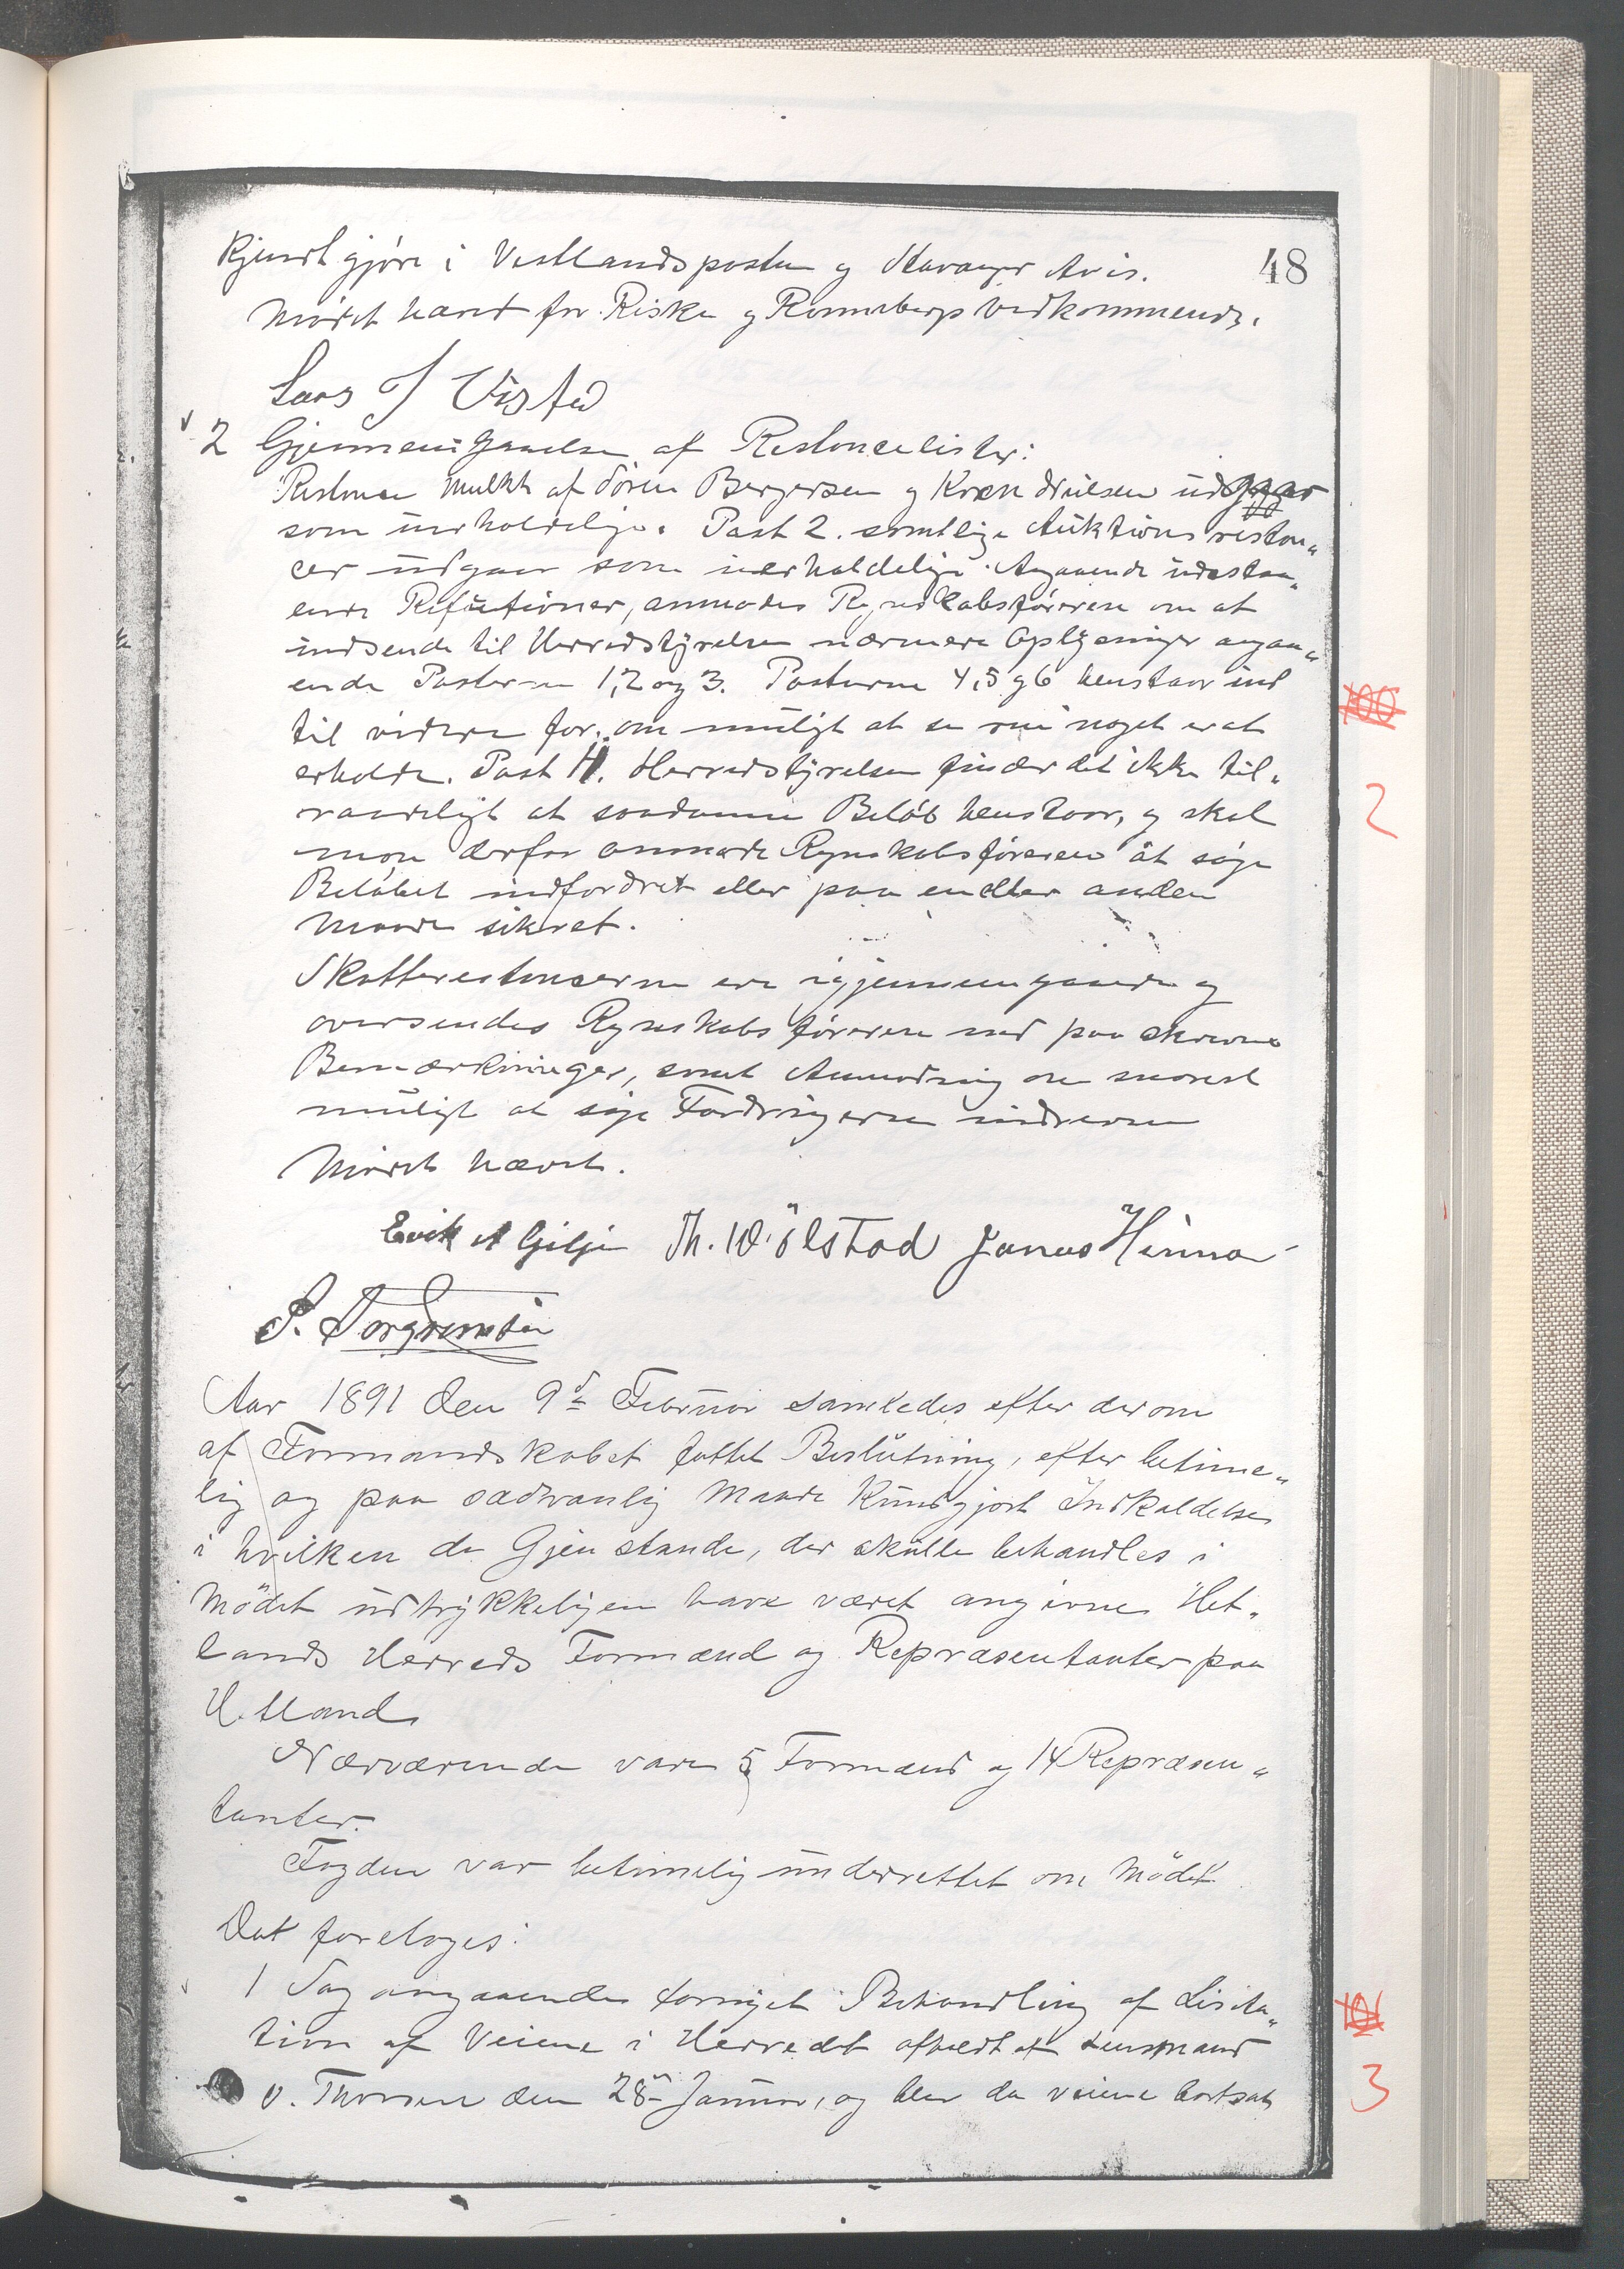 48
kjendtgjøre i Vestlandsposten og Stavanger Avis.
Mødet hævet for Riska og Rommeberg Vedkommende.
Lars T Visted
2 Gjennemgaaelse af Restancelister:
Restance Mulkt af Sören Bergersen og Nielsen udgaar
som uerholdelige. Post 2. samtlige Auktionsrestan„
cer udgaar som uerholdelige. Angaaende udestaa„
ende Refusioner, anmodes Regnskabsføreren om at
indsende til Herredstyrelsen nærmere Oplysninger angaa„
ende Posterne 1, 2 og 3. Posterne 4, 5 og 6 henstaar ind
til videre for om muligt at se noget er at
erholde. Post 4. Herredstyrelsen finder det ikke til„
raadeligt at saadanne Beløb henstaar, og skal
man derfor anmode Regnskabsføreren at søge
Beløbet indfordret eller paa en eller anden
Maade sikret.
Skatterestancerne ere igjennemgaaede og
oversendes Regnskabsføreren med paaskrevne
Bemærkninger, samt Anmodning om snarest
muligt at søge Fordringerne inddrevne
Mødet hævet.
Erik A Gilje Th. W. Ölstad Janas Hinna
P. Torgrimsen
Aar 1891 den 9de Februar samledes efter derom
af Formandskabet fattet Beslutning, efter betime„
lig og paa sædvanlig Maade kundgjort Indkaldelse
i hvilken de Gjenstande, der skulle behandles i
Mödet udtrykkeligen have været angivne Het„
lands Herreds Formænd og Repræsentanter paa
Hetland
Nærværende vare 5 Formænd og 14 Repræsen„
tanter.
Fogden var betimelig underrettet om Mödet
Det foretoges:
1 Sag angaaende fornyet Behandling af Lisita„
tion af Veiene i Herredet afholdt af Lensmand
v. Thorsen den 28de Januar, og blev da veiene bortsat
2
3